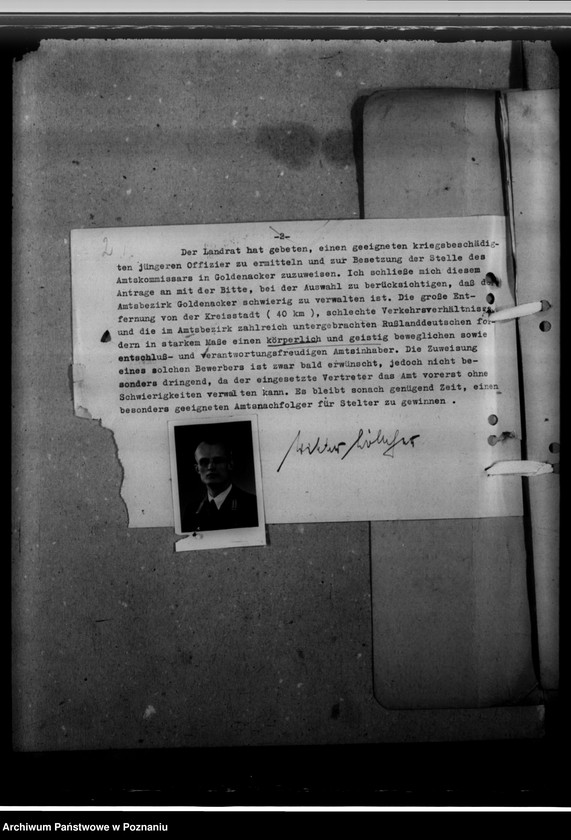 -2-
2
Der Landrat hat gebeten, einen geeigneten kriegsbeschädig-
ten jüngeren Offizier zu ermitteln und zur Besetzung der Stelle des
Amtskommissars in Goldenacker zuzuweisen. Ich schließe mich diesem
Antrage an mit der Bitte, bei der Auswahl zu berücksichtigen, daß der
Amtsbezirk Goldenacker schwierig zu verwalten ist. Die große Ent-
fernung von der Kreisstadt ( 40 km ), schlechte Verkehrsverhältnisse
und die im Amtsbezirk zahlreich untergebrachten Rußlanddeutschen for-
dern in starkem Maße einen körperlich und geistig beweglichen sowie
entschluß- und verantwortungsfreudigen Amtsinhaber. Die Zuweisung
eines solchen Bewerbers ist zwar bald erwünscht, jedoch nicht be-
sonders dringend, da der eingesetzte Vertreter das Amt vorerst ohne
Schwierigkeiten verwalten kann. Es bleibt sonach genügend Zeit, einen
besonders geeigneten Amtsnachfolger für Stelter zu gewinnen .
Archiwum Państwowe w Poznaniu